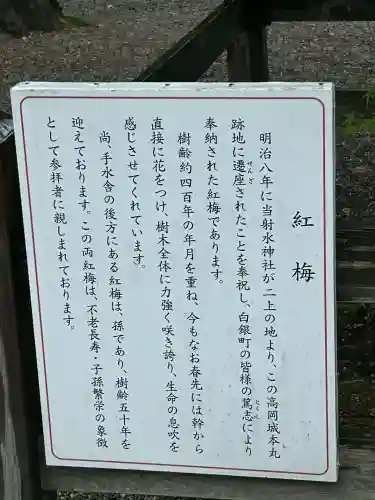 紅梅
明治八年に当射水神社が二上の地より、この高岡城本丸
跡地に遷座されたことを奉祝し、白銀町の皆様の篤志により
奉納された紅梅であります。
樹齢約四百年の年月を重ね、今もなお春先には幹から
直接に花をつけ、樹木全体に力強く咲き誇り、生命の息吹を
感じさせてくれています。
尚、手水舎の後方にある紅梅は、孫であり、樹齢五十年を
迎えております。この両紅梅は、不老長寿・子孫繁栄の象徴
として参拝者に親しまれております。